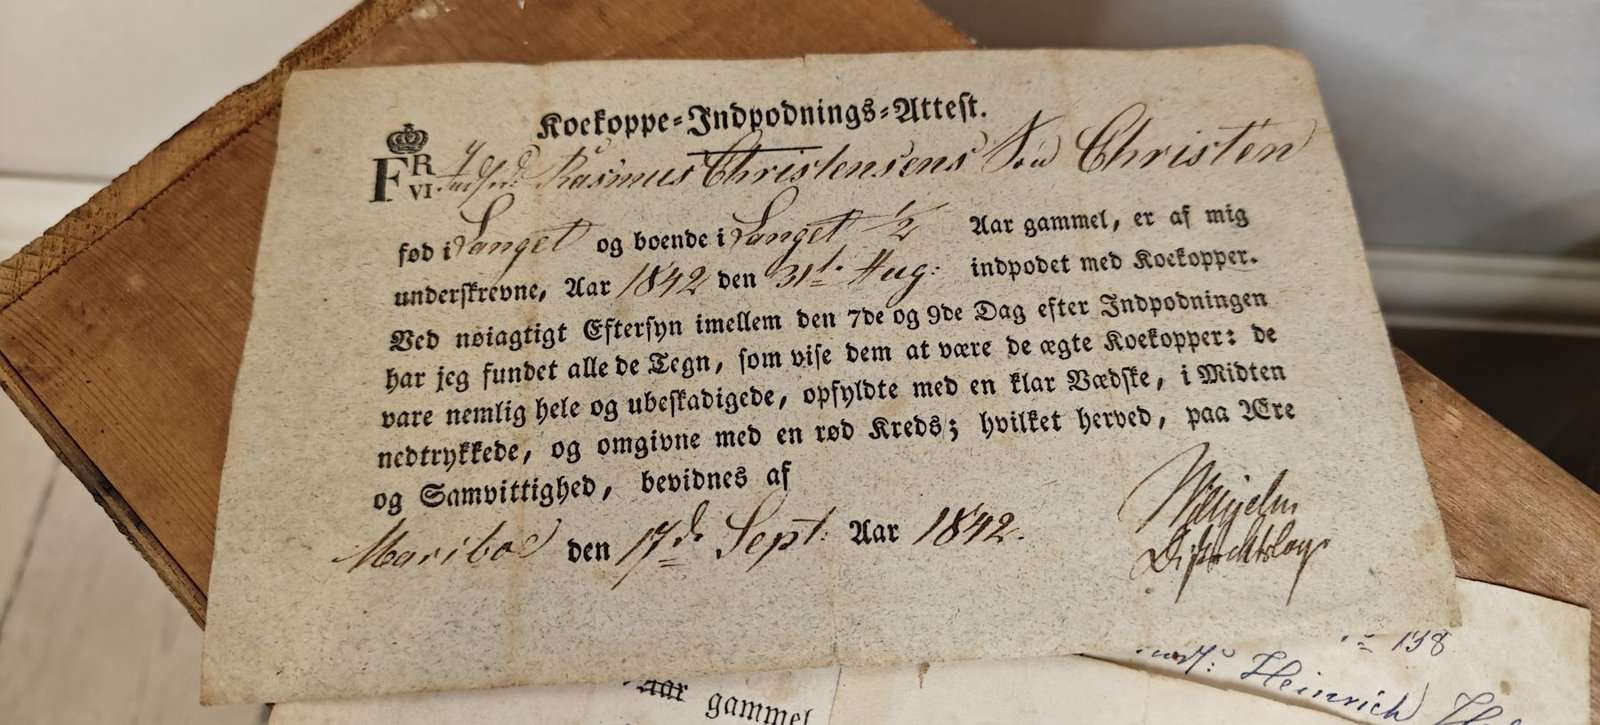 Koekoppe-Indpodnings-Attest.
F R VI
Rasmus Christensens Søn Christen
fød i Sanget og boende i Sanget 1/2 Aar gammel, er af mig
underskrevne, Aar 1842 den 31te Aug: indpodet med Koekopper.
Ved nøiagtigt Eftersyn imellem den 7de og 9de Dag efter Indpodningen
har jeg fundet alle de Tegn, som vise dem at være de ægte Koekopper: de
vare nemlig hele og ubeskadigede, opfyldte med en klar Vædske, i Midten
nedtrykkede, og omgivne med en rød Kreds; hvilket herved, paa Ære
og Samvittighed, bevidnes af
Mariboe den 17de Sept: Aar 1842.
Wilhjelm
Districtslæge
138
Heinrich
Aar gammel